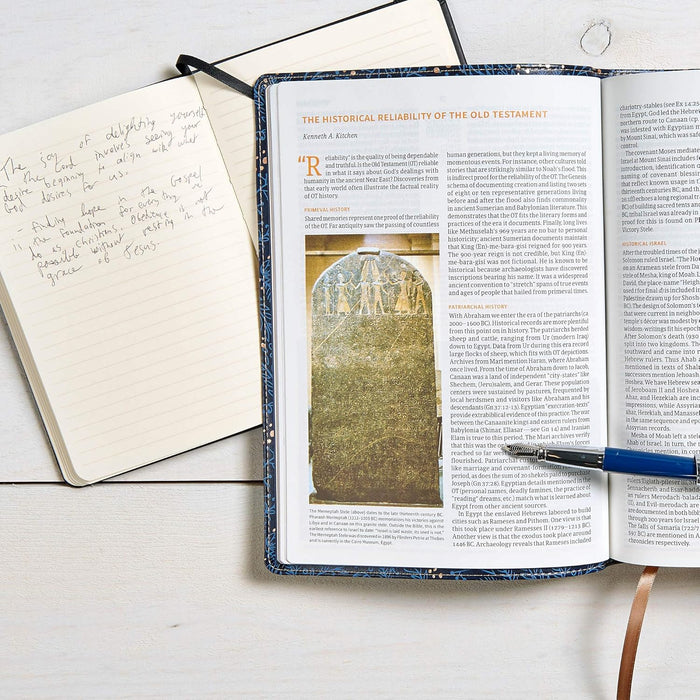 The joy of delighting yourself
in the Lord involves seeing your
desire beginning to align with what
God desires for us.
Finding hope in the Gospel
is the foundation for everything we
do as christians. Obedience is not
possible without resting in the
grace of Jesus.
THE HISTORICAL RELIABILITY OF THE OLD TESTAMENT
Kenneth A. Kitchen
"Reliability" is the quality of being dependable
and truthful. Is the Old Testament (OT) reliable
in what it says about God's dealings with
humanity in the ancient Near East? Discoveries from
that early world often illustrate the factual reality
of OT history.
PRIMEVAL HISTORY
Shared memories represent one proof of the reliability
of the OT. Far antiquity saw the passing of countless
The Merneptah Stele (above) dates to the late thirteenth century BC.
Pharaoh Merneptah (1213–1203 BC) memorializes his victories against
Libya and in Canaan on this granite stele. Outside the Bible, this is the
earliest reference to Israel to date: "Israel is laid waste, its seed is not."
The Merneptah Stele was discovered in 1896 by Flinders Petrie at Thebes
and is currently in the Cairo Museum, Egypt.
human generations, but they kept a living memory of
momentous events. For instance, other cultures told
stories that are strikingly similar to Noah's flood. This
is indirect proof for the reliability of the OT. The Genesis
schema of documenting creation and listing two sets
of eight or ten representative generations living
before and after the flood also finds commonality
in ancient Sumerian and Babylonian literature. This
demonstrates that the OT fits the literary forms and
practices of the era it documents. Finally, long lives
like Methuselah's 969 years are no bar to personal
historicity; ancient Sumerian documents maintain
that King (En)-me-bara-gisi reigned for 900 years.
The 900-year reign is not credible, but King (En)-
me-bara-gisi was not fictional. He is known to be
historical because archaeologists have discovered
inscriptions bearing his name. It was a widespread
ancient convention to "stretch" spans of true events
and ages of people that hailed from primeval times.
PATRIARCHAL HISTORY
With Abraham we enter the era of the patriarchs (ca
2000–1600 BC). Historical records are more plentiful
from this point on in history. The patriarchs herded
sheep and cattle, ranging from Ur (modern Iraq)
down to Egypt. Data from Ur during this era record
large flocks of sheep, which fits with OT depictions.
Archives from Mari mention Haran, where Abraham
once lived. From the time of Abraham down to Jacob,
Canaan was a land of independent "city-states" like
Shechem, (Jeru)salem, and Gerar. These population
centers were sustained by pastures, frequented by
local herdsmen and visitors like Abraham and his
descendants (Gn 37:12-13). Egyptian "execration-texts"
provide extrabiblical evidence of this practice. The war
between the Canaanite kings and eastern rulers from
Babylonia (Shinar, Ellasar—see Gn 14) and Iranian
Elam is true to this period. The Mari archives verify
that this was the only period in which Elam's forces
reached so far west
flourished. Patriarchal
like marriage and covenant-formation
period, as does the sum of 20 shekels paid to purchase
Joseph (Gn 37:28). Egyptian details mentioned in the
OT (personal names, deadly famines, the practice of
"reading" dreams, etc.) match what is learned about
Egypt from other ancient sources.
In Egypt the enslaved Hebrews labored to build
cities such as Rameses and Pithom. One view is that
this took place under Ramesses II (1279–1213 BC).
Another view is that the exodus took place around
1446 BC. Archaeology reveals that Rameses included
chariotry-stables (see Ex 14:25
from Egypt, God led the Hebrew
northern route to Canaan (cp.
was infested with Egyptian
by Mount Sinai, which was safe
control.
The covenant Moses mediated
Israel at Mount Sinai includes
introduction, identification
naming of covenant blessing
that reflect known usage in
thirteenth centuries BC, and
20:18) echoes a long regional tra
BC) of building sacred tents and
BC, tribal Israel was already in
proof for this is found on
Victory Stele.
HISTORICAL ISRAEL
After the troubled times of the j
Solomon ruled Israel. "The Hou
on an Aramean stela from Dan
stele of Mesha, king of Moab. L
David, the place-name "Height
used for
Palestine drawn up for Shosh
BC. The design of Solomon's te
that were current in neighbori
temple's décor was modest by
wisdom-writings fit his epoch
After Solomon's death (930
split into two kingdoms. The
southward and came into
Hebrew rulers. Thus Ahab a
mentioned in texts of Shalm
successors mention Jehoash
Hoshea. We have Hebrew sea
of Jeroboam II and Hoshea
Ahaz, and Hezekiah are inc
impressions, while Assyrian
Ahaz, Hezekiah, and Manasseh
in the same sequence and epo
Assyrian records.
Mesha of Moab left a stele
Ahab of Israel. In turn, the
documents mention, in
rulers Tiglath-pileser
Sennacherib, and Esar-haddon
as rulers Merodach-balada
II), and Evil-merodach are
are documented in both bibl
through 200 years for Israel
The falls of Samaria (722/7
597 BC) are mentioned in A
chronicles respectively.